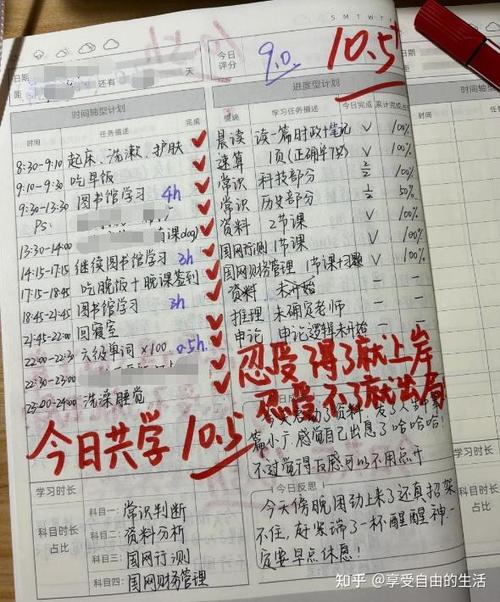 S M T W T F S
日期
距 还有 天
今日评分
9.0
10.5+
时间轴型计划
时间 任务描述 完成
8:30-9:10 起床、洗漱、护肤
9:10-9:30 吃早饭
9:30-13:30 图书馆学习 4h
Ps:
13:30-14:00
14:15-17:15 继续图书馆学习 3h
17:15-18:45 吃晚饭+晚课签到
18:45-21:45 图书馆学习 3h
21:45-22:00 回寝室
22:00-22:30 六级单词×100 0.5h
22:30-23:00
23:00-24:00 洗澡睡觉
今日共学 10.5
学习时长
科目时长占比
科目一: 常识判断
科目二: 资料分析
科目三: 国网行测
科目四: 国网财务管理
进度型计划
模块 学习任务描述 今日完成 累计完成
晨读 读一篇时政+笔记 √ 100%
速算 1页 √ 100%
常识 科技部分 2/2 100%
常识 历史部分 1/2 50%
资料 2节课 √ 100%
国网行测 1节课 √ 100%
国网财务管理 1节课+习题 √ 100%
资料 未开始
推理 未确定老师
申论 申论逻辑未开始
忍受得了就上岸
忍受不了就出局
感觉自己出息了哈哈哈
今日反思
今天傍晚困劲上来了还真招架
不住,好寒端了一杯醒醒神一
定要早点休息!
知乎 @享受自由的生活